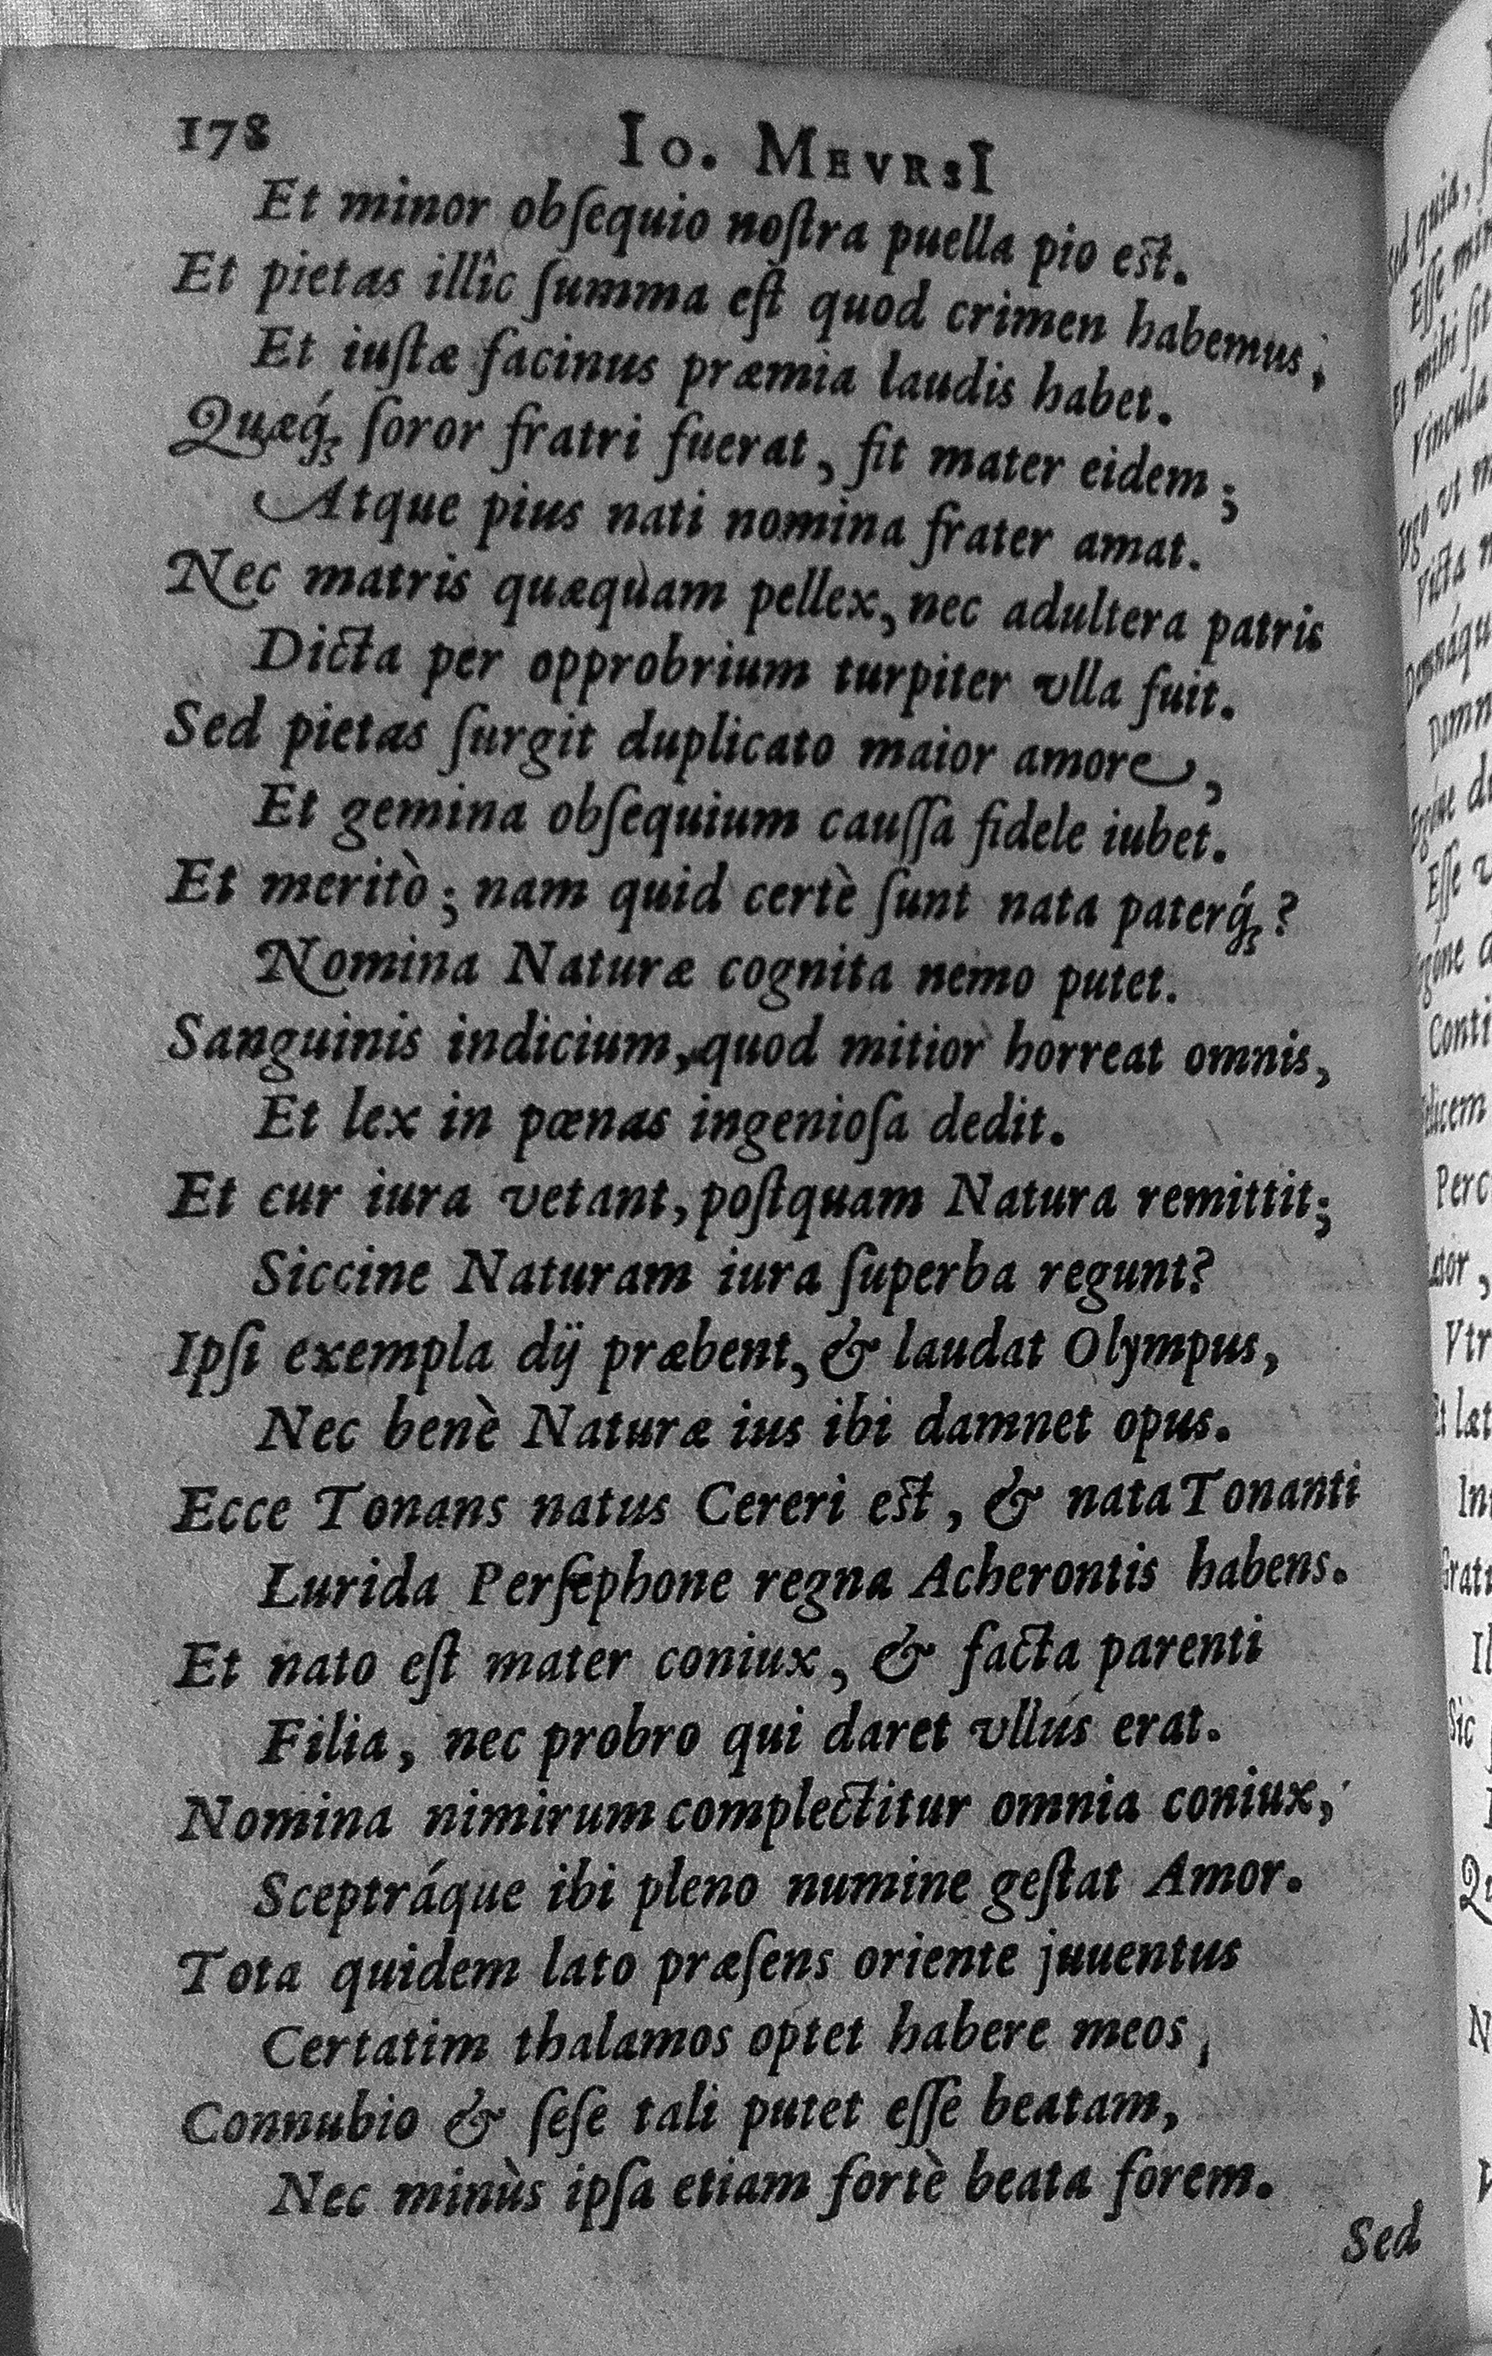 178 Io. MEVRSI
Et minor obſequio noſtra puella pio eſt.
Et pietas illîc ſumma eſt quod crimen habemus;
Et iuſtæ facinus præmia laudis habet.
Quæq́; ſoror fratri fuerat, fit mater eidem;
Atque pius nati nomina frater amat.
Nec matris quæquam pellex, nec adultera patris
Dicta per opprobrium turpiter vlla fuit.
Sed pietas ſurgit duplicato maior amore,
Et gemina obſequium cauſſa fidele iubet.
Et meritò; nam quid certè ſunt nata paterq́;?
Nomina Naturæ cognita nemo putet.
Sanguinis indicium, quod mitior horreat omnis,
Et lex in pœnas ingenioſa dedit.
Et cur iura vetant, poſtquam Natura remittit;
Siccine Naturam iura ſuperba regunt?
Ipſi exempla dij præbent, & laudat Olympus,
Nec benè Naturæ ius ibi damnet opus.
Ecce Tonans natus Cereri eſt, & nata Tonanti
Lurida Perſephone regna Acherontis habens.
Et nato eſt mater coniux, & facta parenti
Filia, nec probro qui daret vllus erat.
Nomina nimirum complectitur omnia coniux,
Sceptráque ibi pleno numine geſtat Amor.
Tota quidem lato præſens oriente juuentus
Certatim thalamos optet habere meos,
Connubio & ſeſe tali putet eſſe beatam,
Nec minùs ipſa etiam fortè beata forem.
Sed